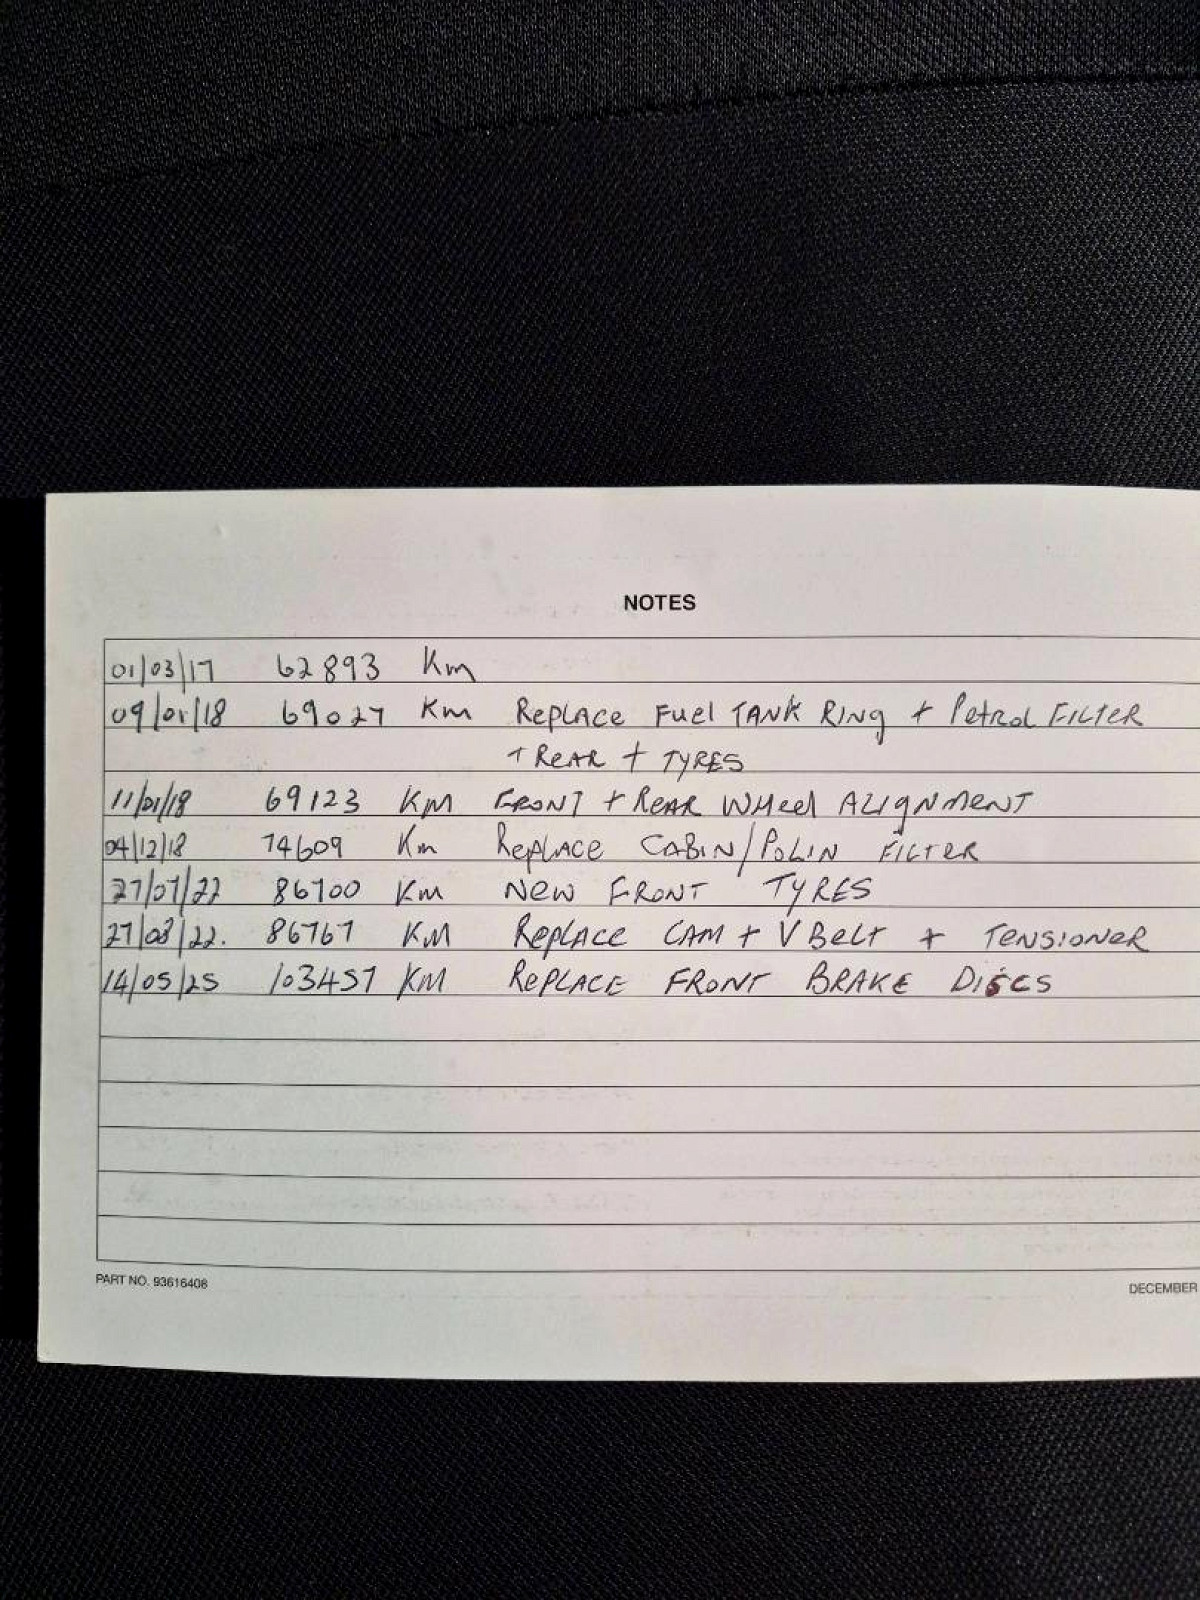 NOTES
01/03/17 62893 Km
09/01/18 69027 Km RePLACE Fuel TANK RINg + Petrol FILTER
+ ReAR + TYRES
11/01/18 69123 KM FRONT + ReAR WHeel ALIgNMENT
04/12/18 74609 Km RePLACE CABIN/POLIN FILTER
27/07/22 86700 Km NeW FRONT TYRES
27/08/22. 86767 KM RePLACE CAM + V Belt + TeNSIONeR
14/05/25 103457 KM RePLACE FRONT BRAKE DISCS
PART NO. 93616408
DECEMBER